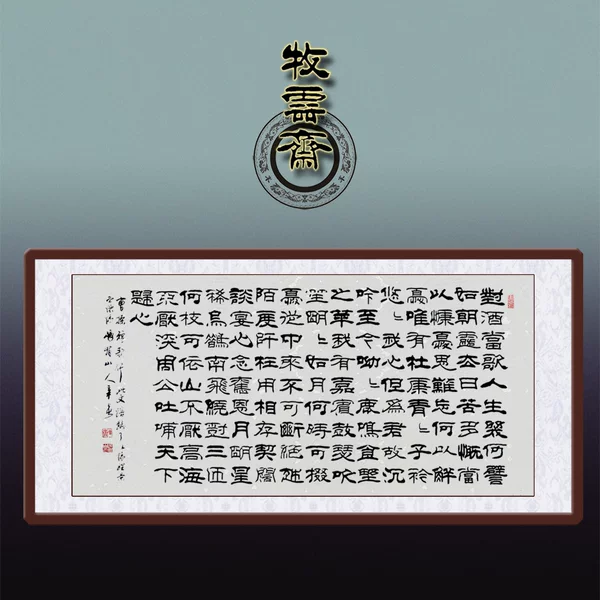 牧齋
對酒當歌人生幾何譬
如朝露去日苦多慨當
以慷憂思難忘何以解
憂唯有杜康青〻子衿
悠〻我心但為君故沉
吟至今呦〻鹿鳴食埜
之苹我有嘉賓鼓瑟吹
笙朙〻如月何時可掇
憂從中來不可斷絕越
陌度阡枉用相存契闊
談宴心念舊恩月朙星
稀烏鵲南飛繞樹三匝
何枝可依山不厭高海
不厭深周公吐哺天下
歸心
曹操短歌行
山人